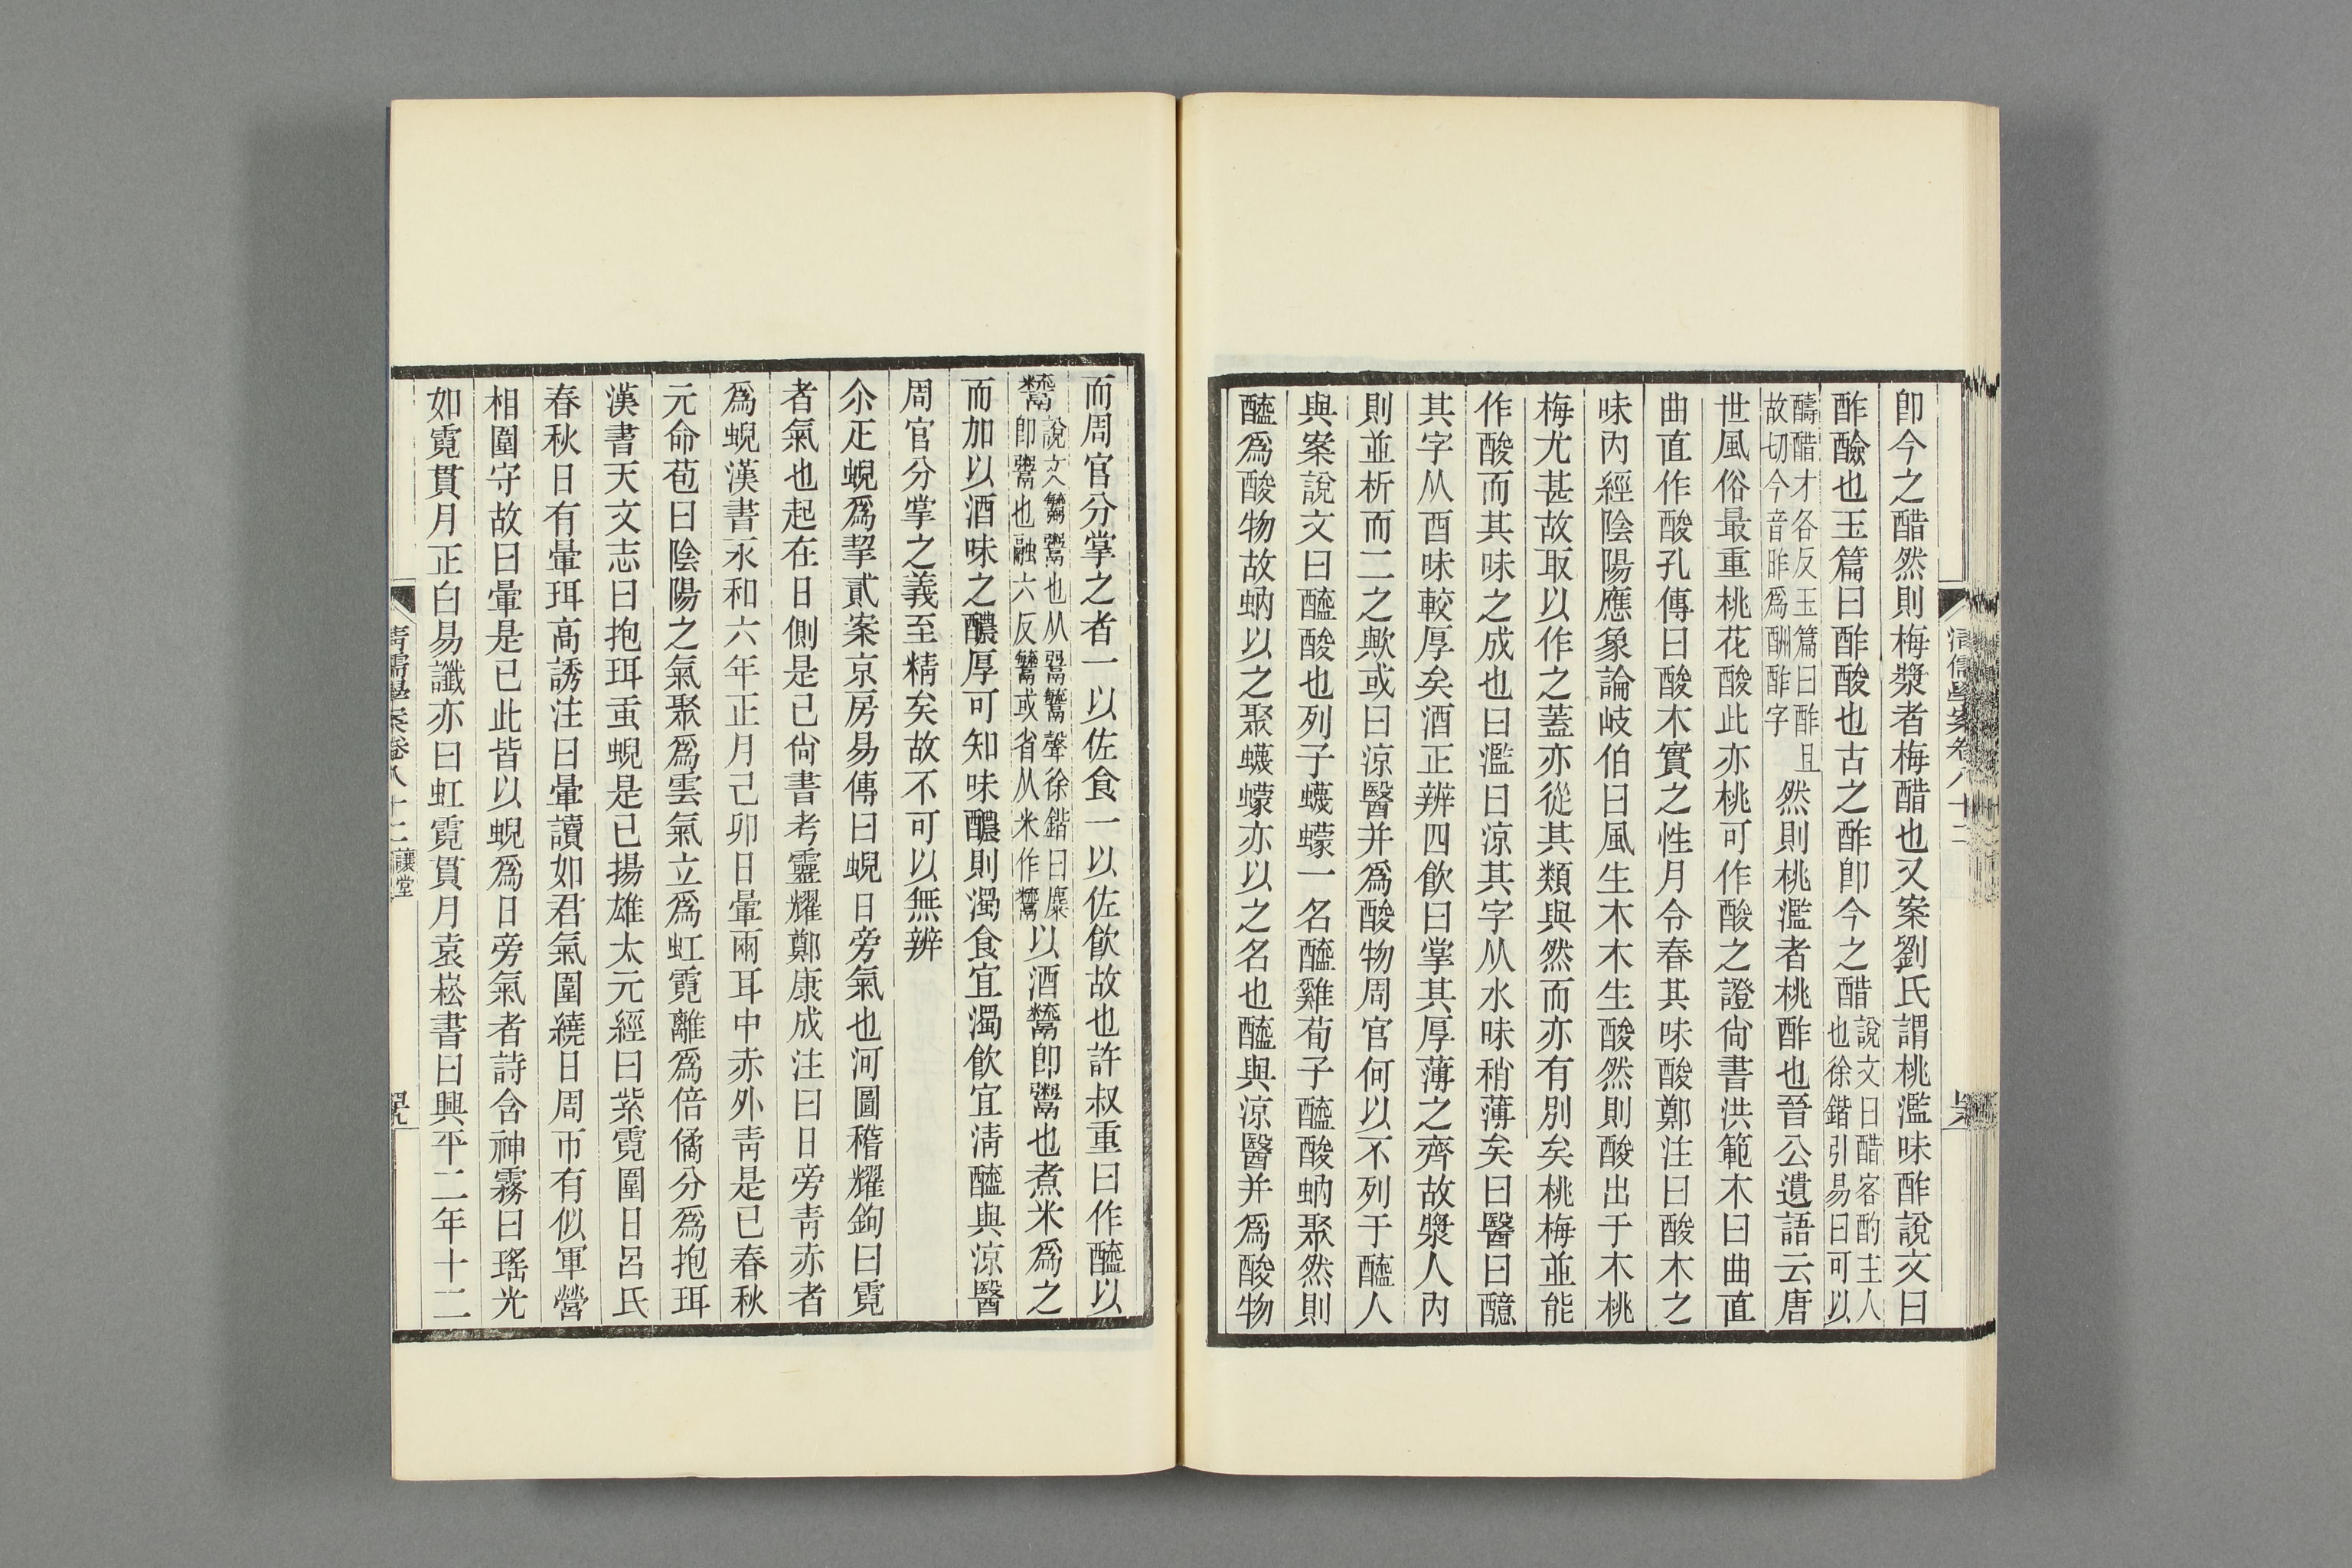 卽今之醋然則梅漿者梅醋也又案劉氏謂桃濫味酢說文曰
酢醶也玉篇曰酢酸也古之酢卽今之醋說文曰醋客酌主人也徐鍇引易曰可以
醻醋才各反玉篇曰酢且故切今音昨爲酬酢字然則桃濫者桃酢也晉公遺語云唐
世風俗最重桃花酸此亦桃可作酸之證尙書洪範木曰曲直
曲直作酸孔傳曰酸木實之性月令春其味酸鄭注曰酸木之
味內經陰陽應象論岐伯曰風生木木生酸然則酸出于木桃
梅尤甚故取以作之蓋亦從其類與然而亦有別矣桃梅並能
作酸而其味之成也曰濫曰涼其字从水味稍薄矣曰醫曰醷
其字从酉味較厚矣酒正辨四飮曰掌其厚薄之齊故漿人內
則並析而二之歟或曰涼醫并爲酸物周官何以不列于醯人
與案說文曰醯酸也列子蠛蠓一名醯雞荀子醯酸蚋聚然則
醯爲酸物故蚋以之聚蠛蠓亦以之名也醯與涼醫并爲酸物
清儒學案卷八十二
而周官分掌之者一以佐食一以佐飮故也許叔重曰作醯以
鬻說文鬻也从聲徐鍇曰麋卽鬻也融六反或省从米作以酒卽鬻也煮米爲之
而加以酒味之醲厚可知味醲則濁食宜濁飮宜淸醯與涼醫
周官分掌之義至精矣故不可以無辨
尒疋蜺爲挈貳案京房易傳曰蜺日旁氣也河圖稽耀鉤曰霓
者氣也起在日側是已尙書考靈耀鄭康成注曰日旁靑赤者
爲蜺漢書永和六年正月己卯日暈兩耳中赤外靑是已春秋
元命苞曰陰陽之氣聚爲雲氣立爲虹霓離爲倍僪分爲抱珥
漢書天文志曰抱珥䖝蜺是已揚雄太元經曰紫霓圍日呂氏
春秋日有暈珥高誘注曰暈讀如君氣圍繞日周帀有似軍營
相圍守故曰暈是已此皆以蜺爲日旁氣者詩含神霧曰瑤光
如霓貫月正白易讖亦曰虹霓貫月袁崧書曰興平二年十二
清儒學案卷八十二